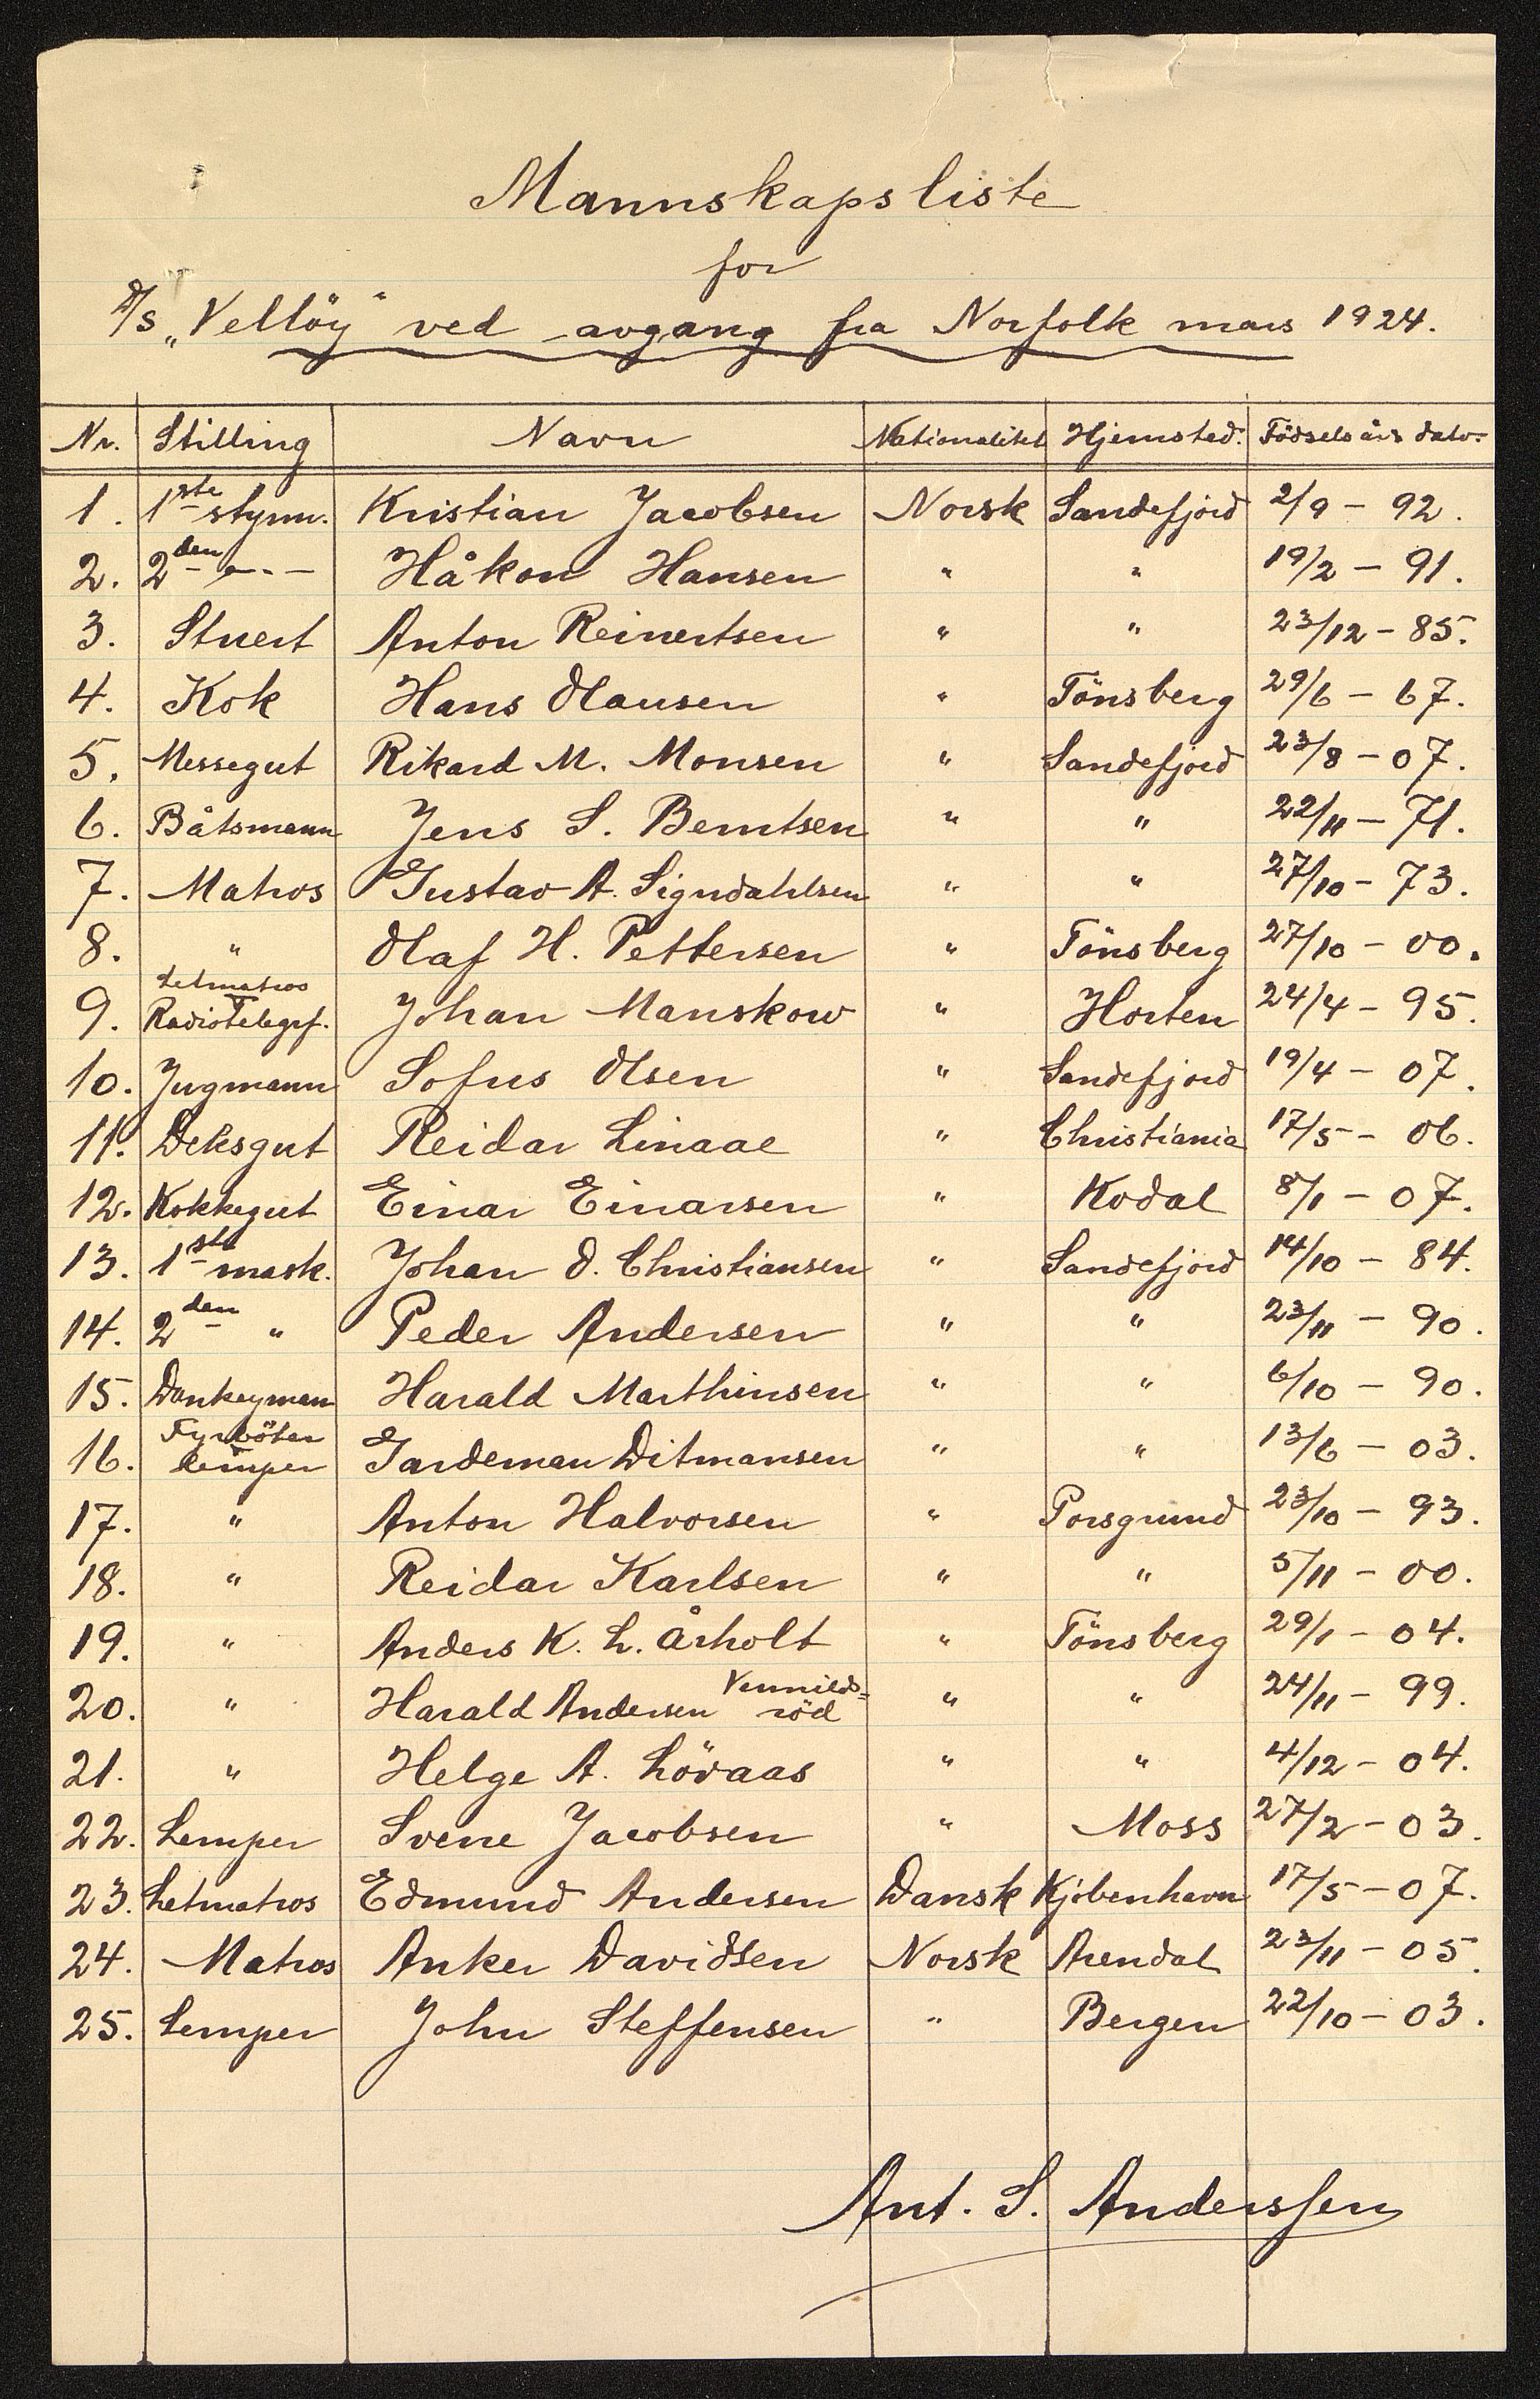 Mannskapsliste
for
D/S „Vestöy" ved avgang fra Norfolk mars 1924.
Nr. Stilling Navn Nationalitet Hjemsted. Födselsårs dato.
1. 1ste styrm. Kristian Jacobsen Norsk Sandefjord 2/9 - 92.
2. 2den —"— Håkon Hansen " " 19/2 - 91.
3. Stuert Anton Reinertsen " " 23/12 - 85.
4. Kok Hans Olausen " Tönsberg 29/6 - 67.
5. Messegut Rikard M. Monsen " Sandefjord 23/8 - 07.
6. Båtsmann Jens S. Berntsen " " 22/11 - 71.
7. Matros Gustav A. Sigurdahlsen " " 27/10 - 73.
8. " Olaf H. Pettersen " Tönsberg 27/10 - 00.
9. Letmatros Radiotelegrf. Johan Manskow " Horten 24/4 - 95.
10. Jugmann Sofus Olsen " Sandefjord 19/4 - 07.
11. Deksgut Reidar Linaae " Christiania 17/5 - 06.
12. Kokkegut Einar Einarsen " Kodal 8/1 - 07.
13. 1ste mask. Johan O. Christiansen " Sandefjord 14/10 - 84.
14. 2den " Peder Andersen " " 23/11 - 90.
15. Donkeyman Harald Marthinsen " " 6/10 - 90.
16. Fyrböter lemper Gardeman Ditmansen " " 13/6 - 03.
17. " Anton Halvorsen " Porsgrund 23/10 - 93.
18. " Reidar Karlsen " " 5/11 - 00.
19. " Anders K. L. Årholt " Tönsberg 29/1 - 04.
20. " Harald Andersen Vennilds=röd " " 24/11 - 99.
21. " Helge A. Lövaas " " 4/12 - 04.
22. Lemper Sverre Jacobsen " Moss 27/2 - 03.
23. Letmatros Edmund Andersen Dansk Kjöbenhavn 17/5 - 07.
24. Matros Anker Davidsen Norsk Arendal 23/11 - 05.
25. Lemper John Steffensen " Bergen 22/10 - 03.
Ant. S. Anderssen